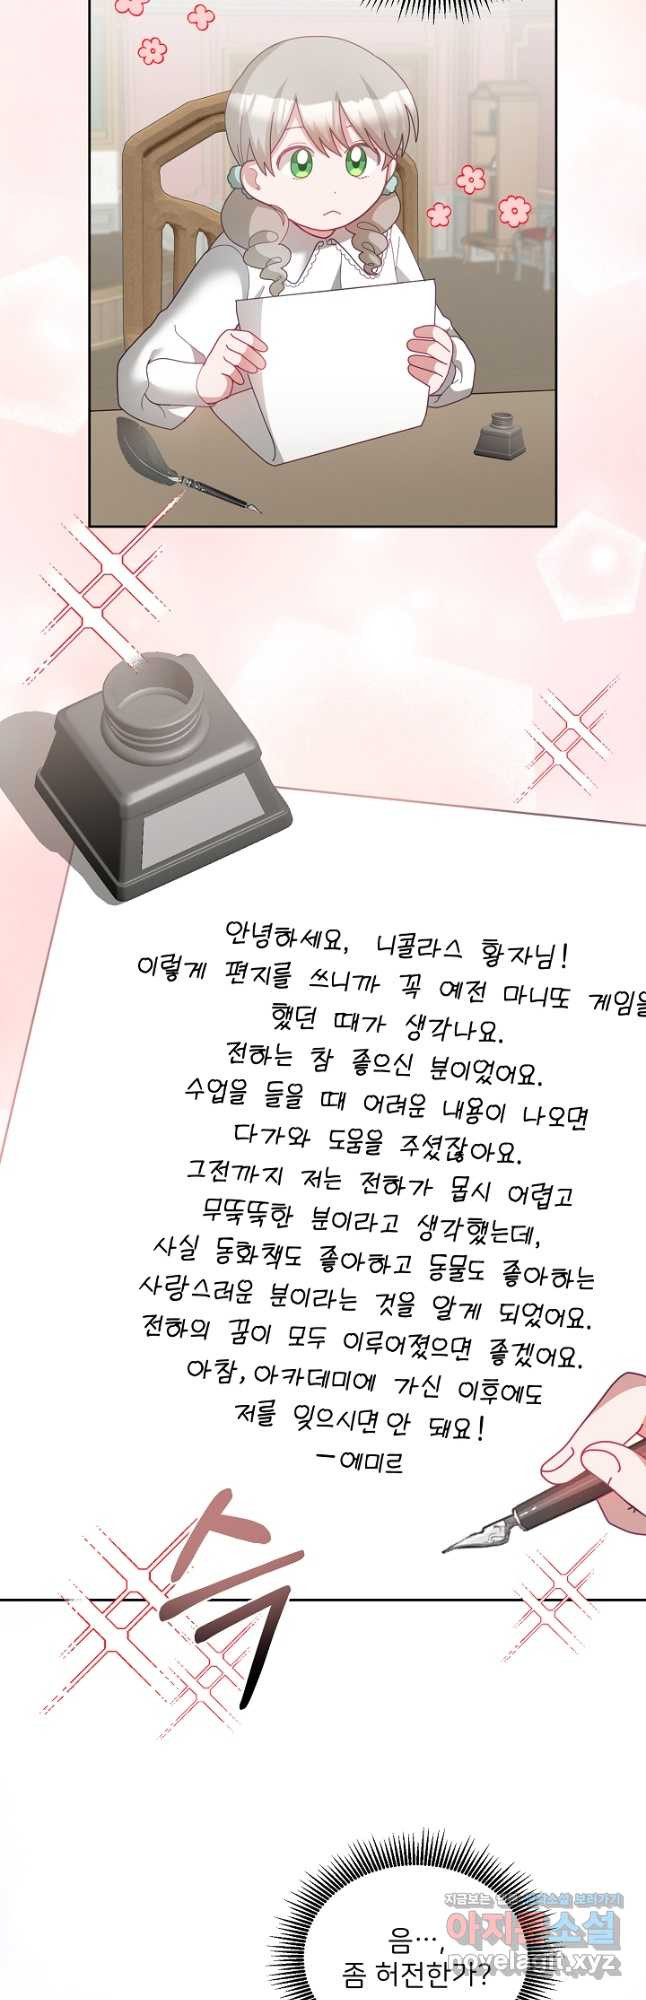 안녕하세요, 니콜라스 황자님!
이렇게 편지를 쓰니까 꼭 예전 마니또 게임을
했던 때가 생각나요.
전하는 참 좋으신 분이었어요.
수업을 들을 때 어려운 내용이 나오면
다가와 도움을 주셨잖아요.
그전까지 저는 전하가 몹시 어렵고
무뚝뚝한 분이라고 생각했는데,
사실 동화책도 좋아하고 동물도 좋아하는
사랑스러운 분이라는 것을 알게 되었어요.
전하의 꿈이 모두 이루어졌으면 좋겠어요.
아참, 아카데미에 가신 이후에도
저를 잊으시면 안 돼요!
—에미르
슥
음…,
좀 허전한가?
지금보는 웹소설 보러가기
아지툰소설
novelagit.xyz